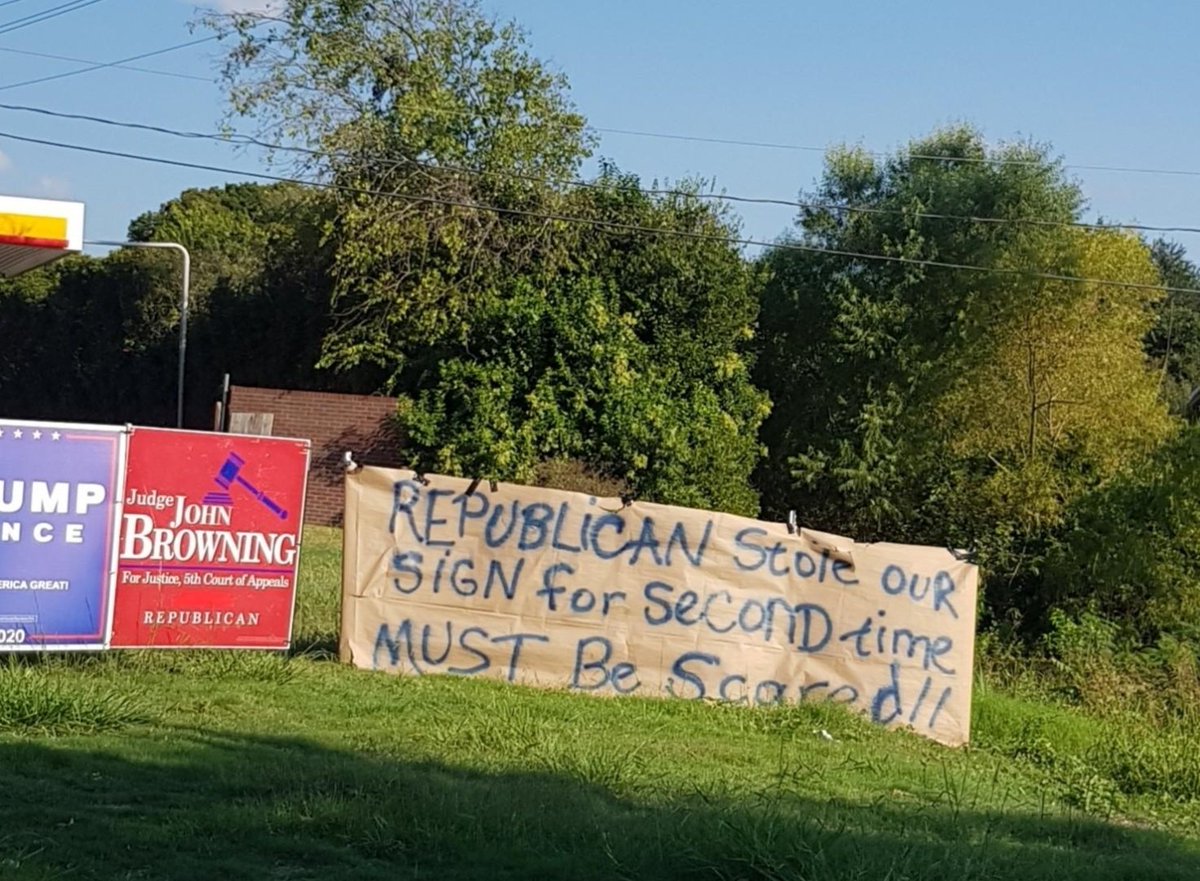 UMP
NCE
ERICA GREAT!
020
Judge JOHN
BROWNING
For Justice, 5th Court of Appeals
REPUBLICAN
REPUBLiCAN Stole OUR
SiGN for Second time
MUST Be Scared!!